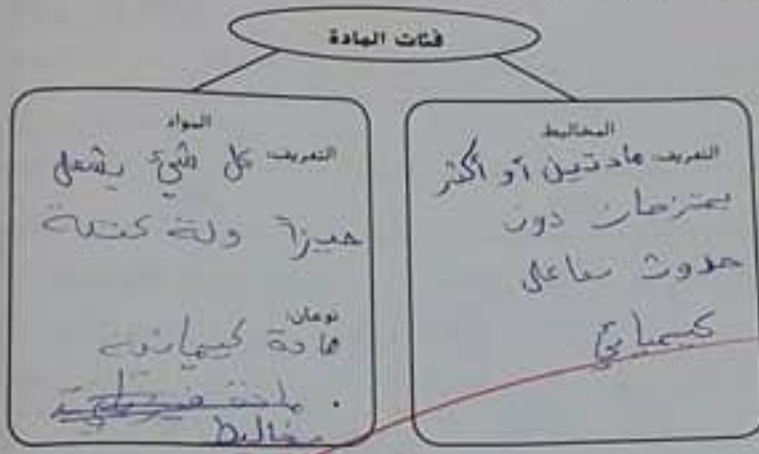 فئات المادة
المخاليط
التعريف: مادتين أو أكثر
يمتزجان دون
حدوث تفاعل
كيميائي
المواد
التعريف: كل شيء يشغل
حيزاً وله كتلة
نوعان:
مادة كيميائية
مادة فيزيائية
مخاليط